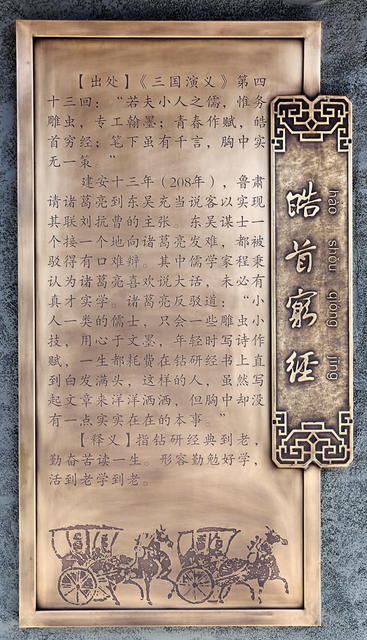 【出处】《三国演义》第四
十三回："若夫小人之儒，惟务
雕虫，专工翰墨；青春作赋，皓
首穷经；笔下虽有千言，胸中实
无一策。"
建安十三年（208年），鲁肃
请诸葛亮到东吴充当说客以实现
其联刘抗曹的主张。东吴谋士一
个接一个地向诸葛亮发难，都被
驳得有口难辩。其中儒学家程秉
认为诸葛亮喜欢说大话，未必有
真才实学。诸葛亮反驳道："小
人一类的儒士，只会一些雕虫小
技，用心于文墨，年轻时写诗作
赋，一生都耗费在钻研经书上直
到白发满头，这样的人，虽然写
起文章来洋洋洒洒，但胸中却没
有一点实实在在的本事。"
【释义】指钻研经典到老，
勤奋苦读一生。形容勤勉好学，
活到老学到老。
皓首穷经
hào shǒu qióng jīng